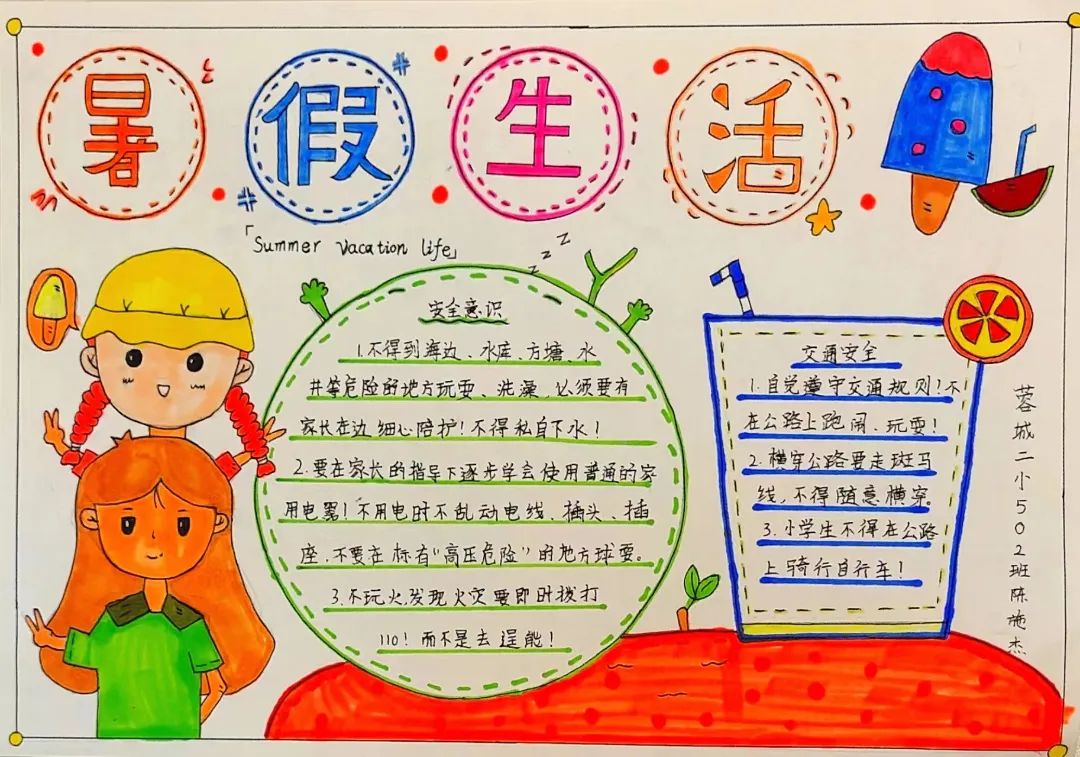 暑假生活
「Summer vacation life」
安全意识
1.不得到海边、水库、方塘、水
井等危险的地方玩耍、洗澡,必须要有
家长在边细心陪护!不得私自下水!
2.要在家长的指导下逐步学会使用普通的家
用电器!不用电时不乱动电线、插头、插
座,不要在标有“高压危险”的地方球耍。
3.不玩火,发现火灾要即时拨打
110!而不是去逞能!
交通安全
1.自觉遵守交通规则!不
在公路上跑闹、玩耍!
2.横穿公路要走斑马
线,不得随意横穿。
3.小学生不得在公路
上骑行自行车!
蓉城二小502班陈施杰